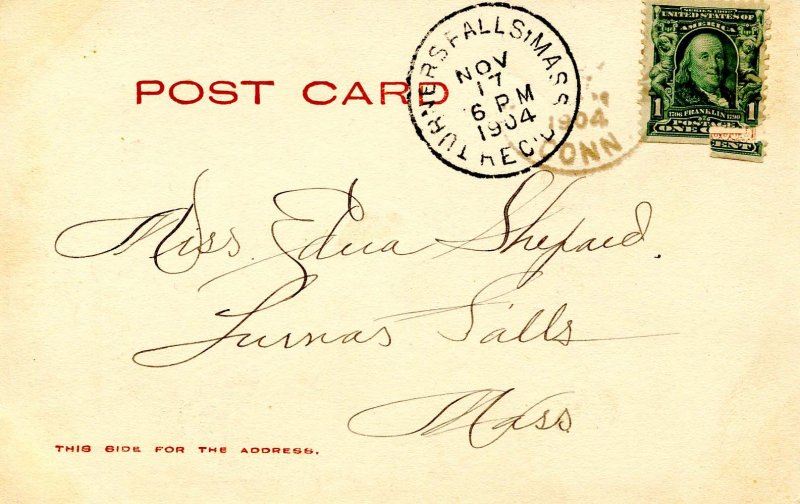 POST CARD
TURNERS FALLS, MASS
NOV
17
6 PM
1904
REC'D
1904
CONN
SERIES 1902
UNITED STATES OF
AMERICA
1 1
1706 FRANKLIN 1790
POSTAGE
ONE
Miss. Edna Shepard.
Turnas Falls
Mass
THIS SIDE FOR THE ADDRESS.